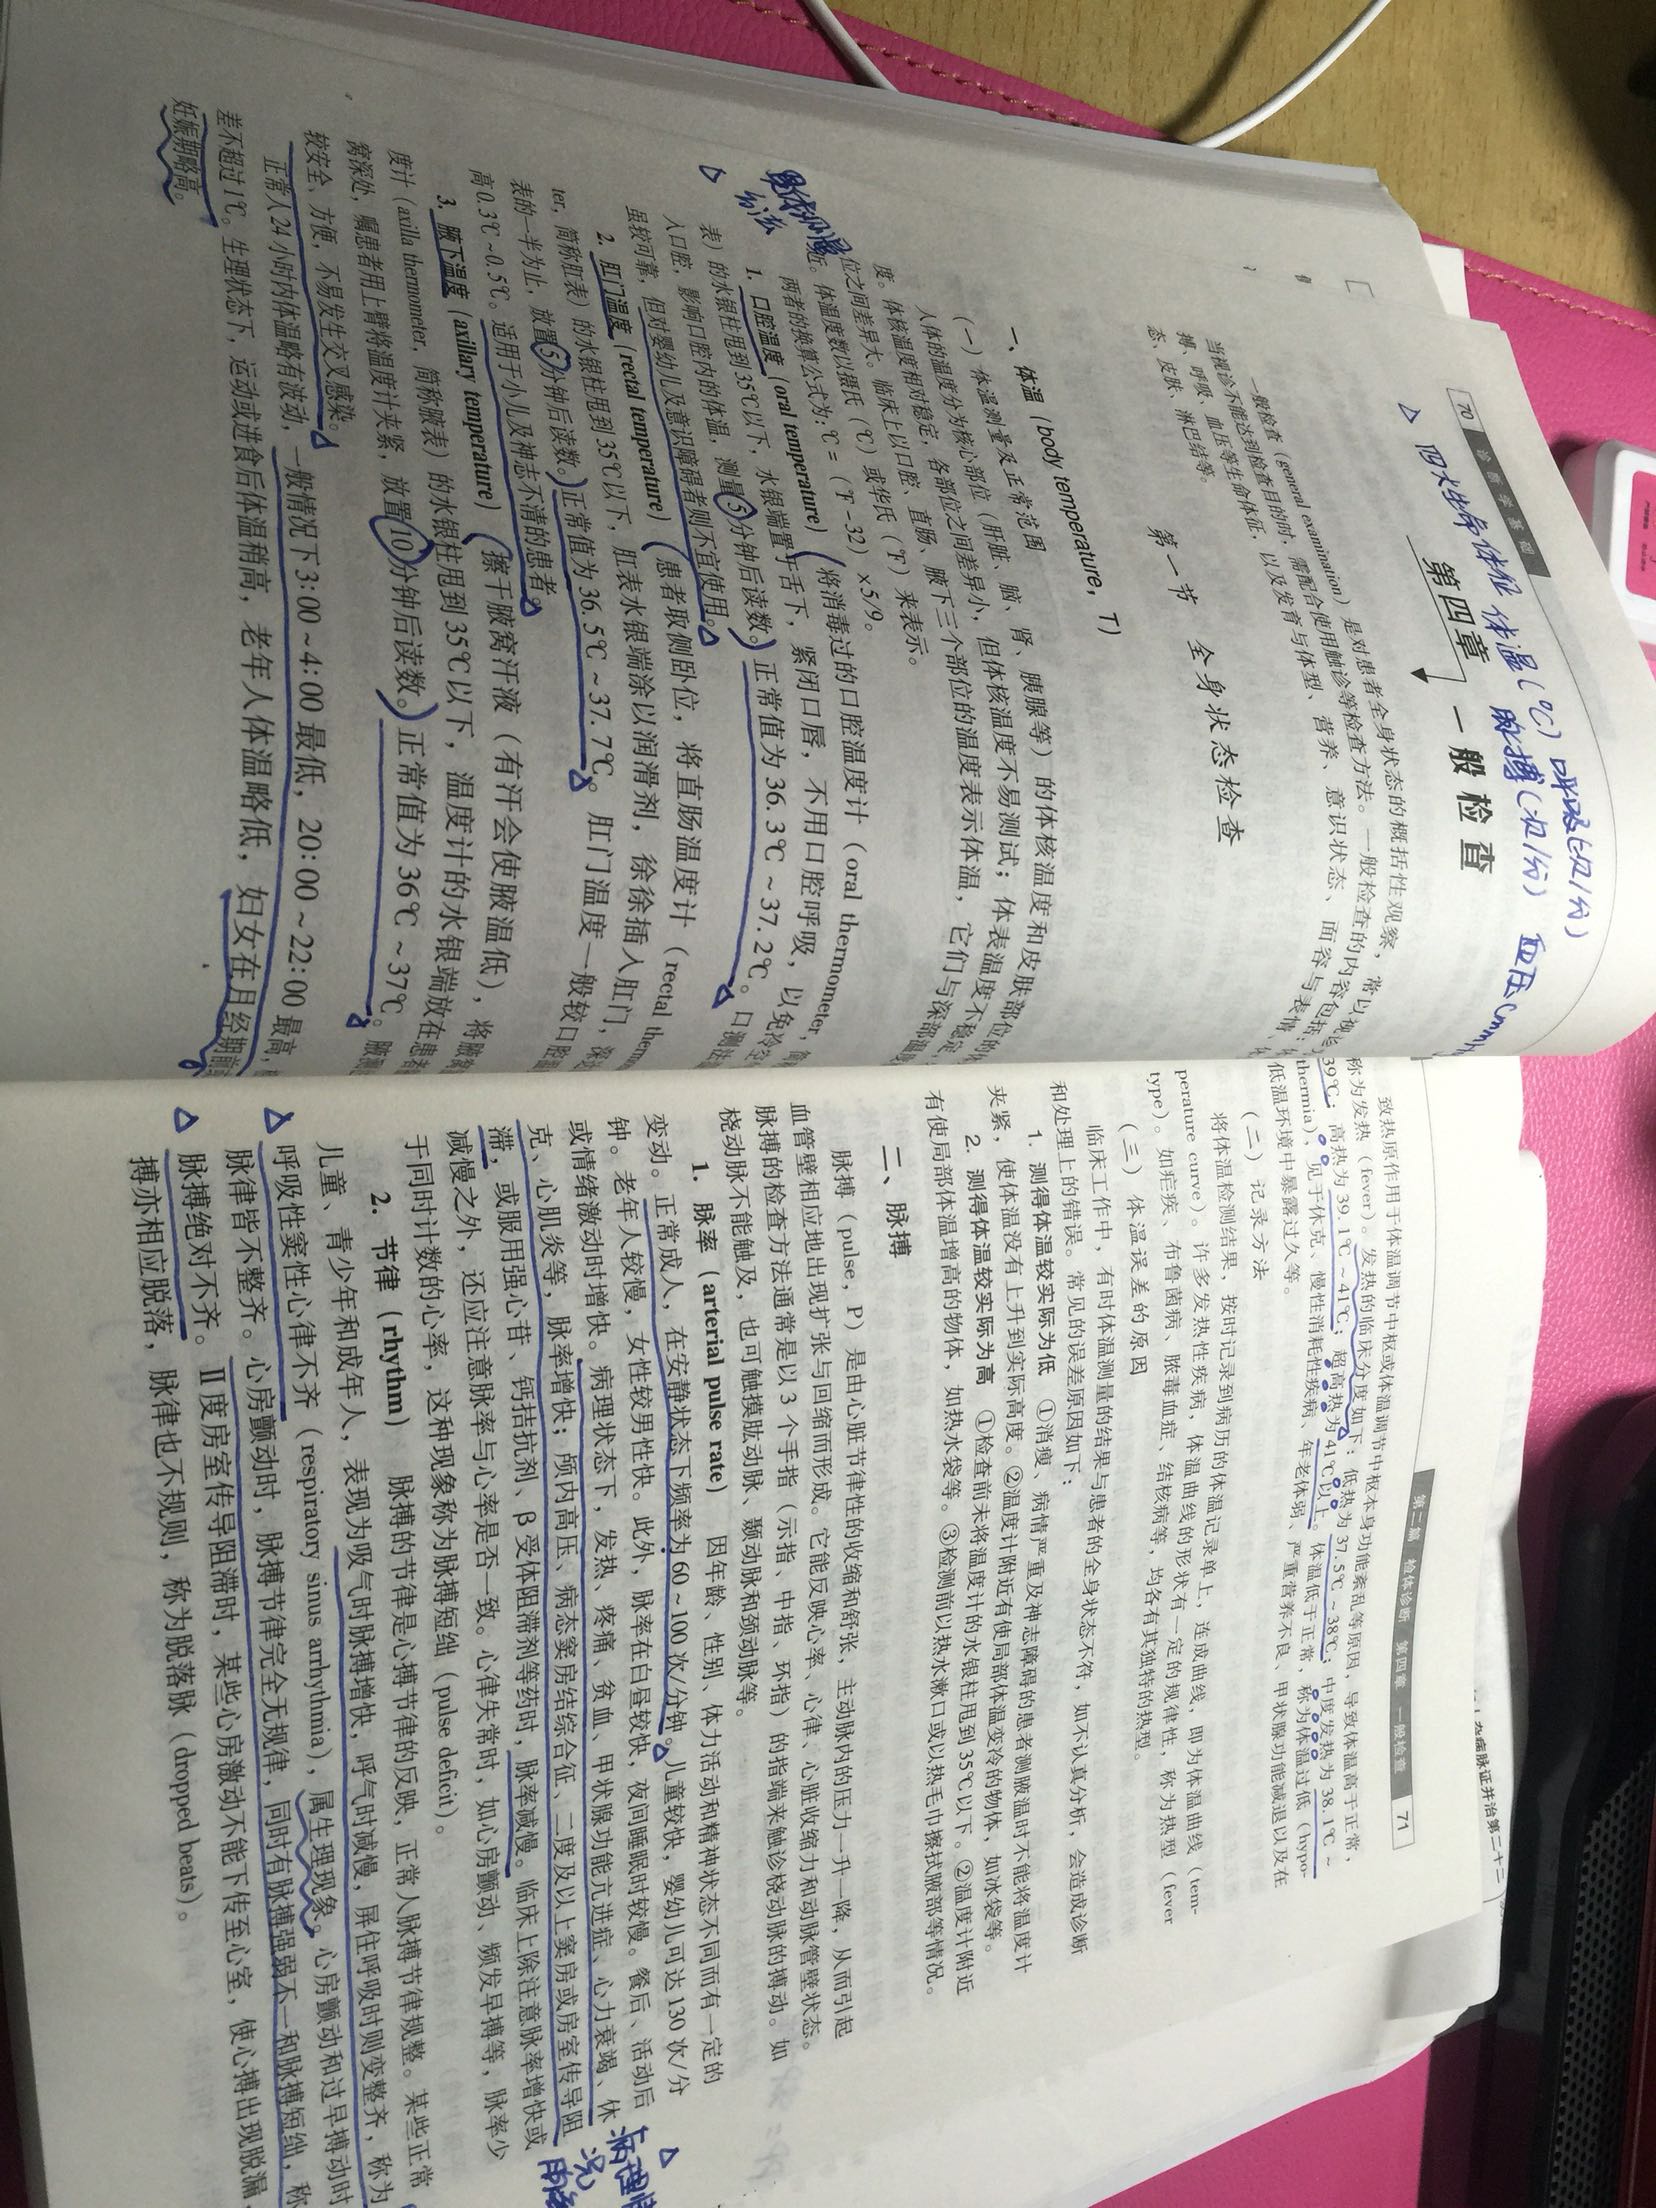 70 诊断学基础
四大生命体征 体温(℃) 呼吸(次/分)
脉搏(次/分) 血压
第四章 一般检查
一般检查(general examination)是对患者全身状态的概括性观察,常以视
当视诊不能达到检查目的时,需配合使用触诊等检查方法。一般检查的内容包括:
搏、呼吸、血压等生命体征,以及发育与体型、营养、意识状态、面容与表情、
态、皮肤、淋巴结等。
第一节 全身状态检查
一、体温(body temperature,T)
(一)体温测量及正常范围
人体的温度分为核心部位(肝脏、脑、肾、胰腺等)的体核温度和皮肤部位的
度。体核温度相对稳定,各部位之间差异小,但体核温度不易测试;体表温度不稳定,
位之间差异大。临床上以口腔、直肠、腋下三个部位的温度表示体温,它们与深部
近。体温度数以摄氏(℃)或华氏(℉)来表示。
两者的换算公式为:℃=(℉-32)×5/9。
测量
方法
1. 口腔温度(oral temperature)(将消毒过的口腔温度计(oral thermometer,
表)的水银柱甩到35℃以下,水银端置于舌下,紧闭口唇,不用口腔呼吸,以免冷
人口腔,影响口腔内的体温,测量5分钟后读数。)正常值为36.3℃~37.2℃。口测
虽较可靠,但对婴幼儿及意识障碍者则不宜使用。
2. 肛门温度(rectal temperature)(患者取侧卧位,将直肠温度计(rectal
ter,简称肛表)的水银柱甩到35℃以下,肛表水银端涂以润滑剂,徐徐插入肛门,深
表的一半为止,放置5分钟后读数。)正常值为36.5℃~37.7℃。肛门温度一般较口腔
高0.3℃~0.5℃。适用于小儿及神志不清的患者。
3. 腋下温度(axillary temperature)(擦干腋窝汗液(有汗会使腋温低),将腋
度计(axilla thermometer,简称腋表)的水银柱甩到35℃以下,温度计的水银端放在患者
窝深处,嘱患者用上臂将温度计夹紧,放置10分钟后读数。)正常值为36℃~37℃。腋测
较安全、方便,不易发生交叉感染。
正常人24小时内体温略有波动,一般情况下3:00~4:00最低,20:00~22:00最高,
差不超过1℃。生理状态下,运动或进食后体温稍高,老年人体温略低,妇女在月经期前
妊娠期略高。
杂病脉证并治第二十二
第二篇 检体诊断 第四章 一般检查 71
致热原作用于体温调节中枢或体温调节中枢本身功能紊乱等原因,导致体温高于正常,
称为发热(fever)。发热的临床分度如下:低热为37.5℃~38℃;中度发热为38.1℃~
39℃;高热为39.1℃~41℃;超高热为41℃以上。体温低于正常,称为体温过低(hypo-
thermia),见于休克、慢性消耗性疾病、年老体弱、严重营养不良、甲状腺功能减退以及在
低温环境中暴露过久等。
(二)记录方法
将体温检测结果,按时记录到病历的体温记录单上,连成曲线,即为体温曲线(tem-
perature curve)。许多发热性疾病,体温曲线的形状有一定的规律性,称为热型(fever
type)。如疟疾、布鲁菌病、脓毒血症、结核病等,均各有其独特的热型。
(三)体温误差的原因
临床工作中,有时体温测量的结果与患者的全身状态不符,如不认真分析,会造成诊断
和处理上的错误。常见的误差原因如下:
1. 测得体温较实际为低 ①消瘦、病情严重及神志障碍的患者测腋温时不能将温度计
夹紧,使体温没有上升到实际高度。②温度计附近有使局部体温变冷的物体,如冰袋等。
2. 测得体温较实际为高 ①检查前未将温度计的水银柱甩到35℃以下。②温度计附近
有使局部体温增高的物体,如热水袋等。③检测前以热水漱口或以热毛巾擦拭腋部等情况。
二、脉搏
脉搏(pulse,P)是由心脏节律性的收缩和舒张,主动脉内的压力一升一降,从而引起
血管壁相应地出现扩张与回缩而形成。它能反映心率、心律、心脏收缩力和动脉管壁状态。
脉搏的检查方法通常是以3个手指(示指、中指、环指)的指端来触诊桡动脉的搏动。如
桡动脉不能触及,也可触摸肱动脉、颞动脉和颈动脉等。
1. 脉率(arterial pulse rate) 因年龄、性别、体力活动和精神状态不同而有一定的
变动。正常成人,在安静状态下频率为60~100次/分钟。儿童较快,婴幼儿可达130次/分
钟。老年人较慢,女性较男性快。此外,脉率在白昼较快,夜间睡眠时较慢。餐后、活动后
或情绪激动时增快。病理状态下,发热、疼痛、贫血、甲状腺功能亢进症、心力衰竭、休
克、心肌炎等,脉率增快;颅内高压、病态窦房结综合征、二度及以上窦房或房室传导阻
滞,或服用强心苷、钙拮抗剂、β受体阻滞剂等药时,脉率减慢。临床上除注意脉率增快或
减慢之外,还应注意脉率与心率是否一致。心律失常时,如心房颤动、频发早搏等,脉率少
于同时计数的心率,这种现象称为脉搏短绌(pulse deficit)。
病理情
况
2. 节律(rhythm) 脉搏的节律是心搏节律的反映,正常人脉搏节律规整。某些正常
儿童、青少年和成年人,表现为吸气时脉搏增快,呼气时减慢,屏住呼吸时则变整齐,称为
呼吸性窦性心律不齐(respiratory sinus arrhythmia),属生理现象。心房颤动和过早搏动时
脉律皆不整齐。心房颤动时,脉搏节律完全无规律,同时有脉搏强弱不一和脉搏短绌,称
脉搏绝对不齐。Ⅱ度房室传导阻滞时,某些心房激动不能下传至心室,使心搏出现脱漏,
搏亦相应脱落,脉律也不规则,称为脱落脉(dropped beats)。